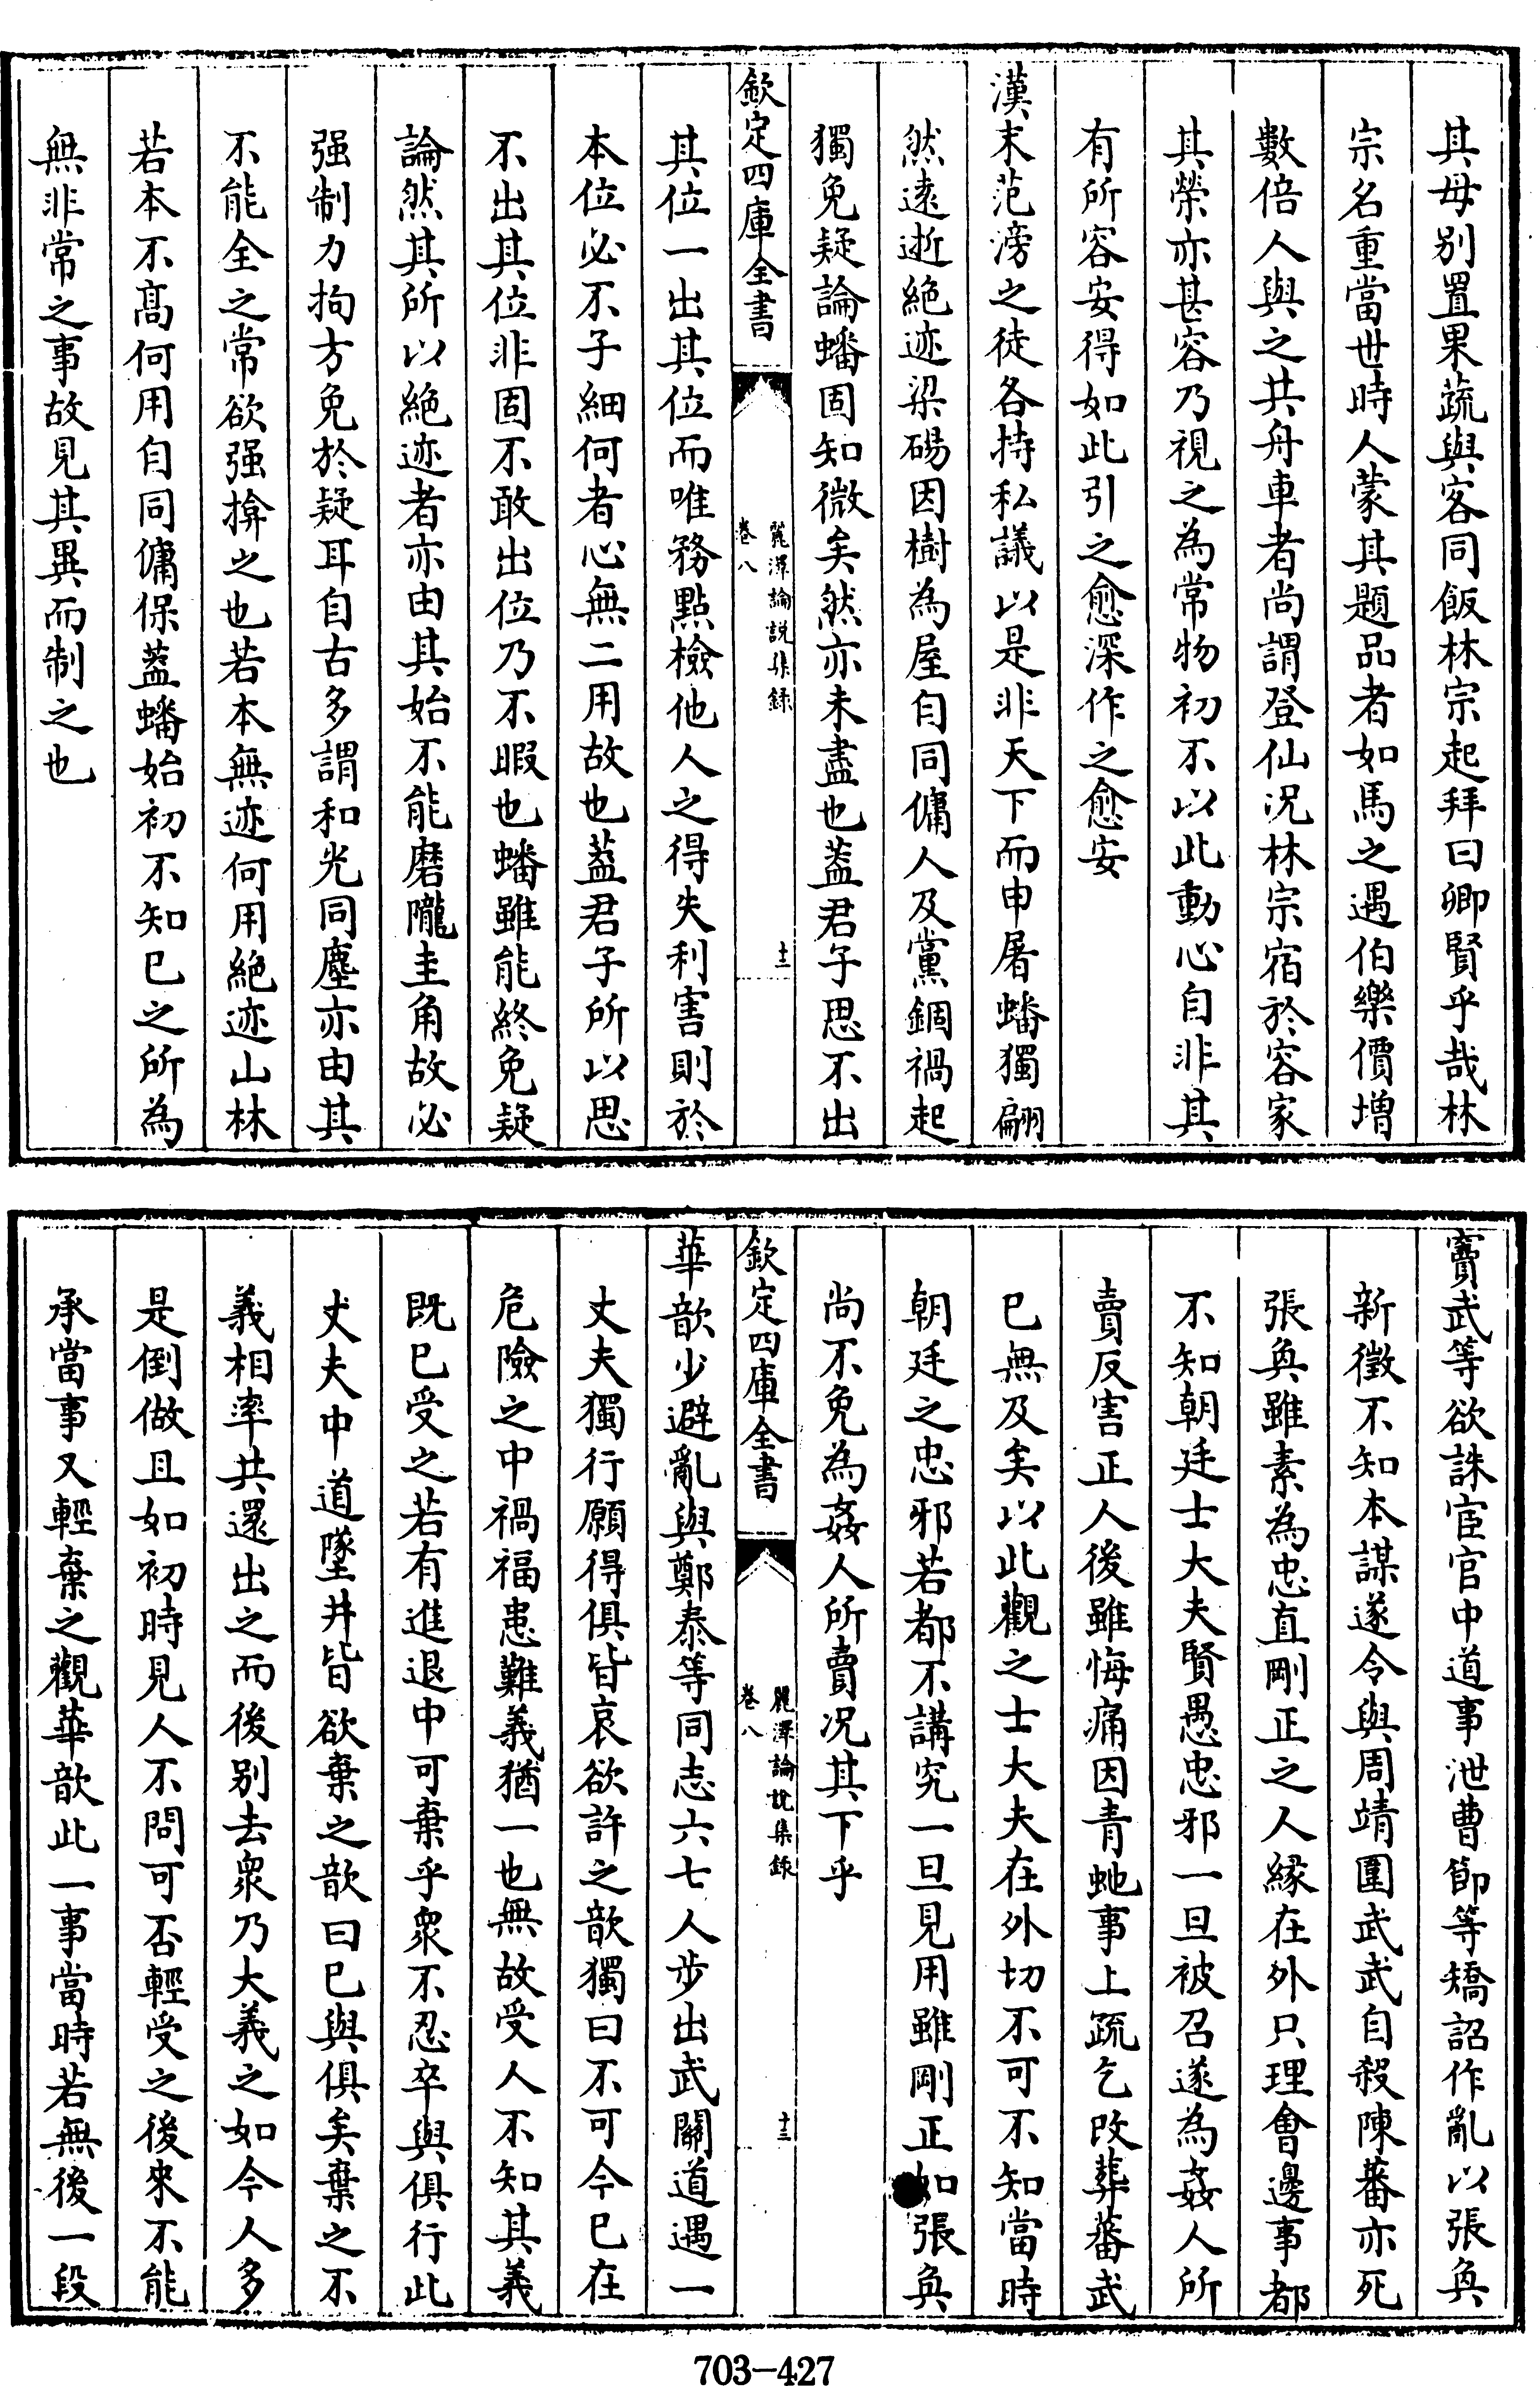 其母别置果蔬與客同飯林宗起拜曰卿賢乎哉林
宗名重當世時人蒙其題品者如馬之遇伯樂價增
數倍人與之共舟車者尚謂登仙况林宗宿於容家
其榮亦甚容乃視之為常物初不以此動心自非其
有所容安得如此引之愈深作之愈安
漢末范滂之徒各持私議以是非天下而申屠蟠獨翩
然逺逝絶迹梁碭因樹為屋自同傭人及黨錮禍起
獨免疑論蟠固知微矣然亦未盡也葢君子思不出
欽定四庫全書
麗澤論説集録
卷八
十二
其位一出其位而唯務點檢他人之得失利害則於
本位必不子細何者心無二用故也葢君子所以思
不出其位非固不敢出位乃不暇也蟠雖能終免疑
論然其所以絶迹者亦由其始不能磨隴圭角故必
强制力拘方免於疑耳自古多謂和光同塵亦由其
不能全之常欲强揜之也若本無迹何用絶迹山林
若本不髙何用自同傭保葢蟠始初不知已之所為
無非常之事故見其異而制之也
竇武等欲誅宦官中道事泄曹節等矯詔作亂以張奐
新徴不知本謀遂令與周靖圍武武自殺陳蕃亦死
張奐雖素為忠直剛正之人緣在外只理會邊事都
不知朝廷士大夫賢愚忠邪一旦被召遂為姦人所
賣反害正人後雖悔痛因青虵事上疏乞改葬蕃武
已無及矣以此觀之士大夫在外切不可不知當時
朝廷之忠邪若都不講究一旦見用雖剛正如張奐
尚不免為姦人所賣况其下乎
欽定四庫全書
麗澤論説集録
卷八
十三
華歆少避亂與鄭泰等同志六七人步出武關道遇一
丈夫獨行願得俱皆哀欲許之歆獨曰不可今已在
危險之中禍福患難義猶一也無故受人不知其義
既已受之若有進退中可棄乎衆不忍卒與俱行此
丈夫中道墜井皆欲棄之歆曰已與俱矣棄之不
義相率共還出之而後别去衆乃大義之如今人多
是倒做且如初時見人不問可否輕受之後來不能
承當事又輕棄之觀華歆此一事當時若無後一段
703-427